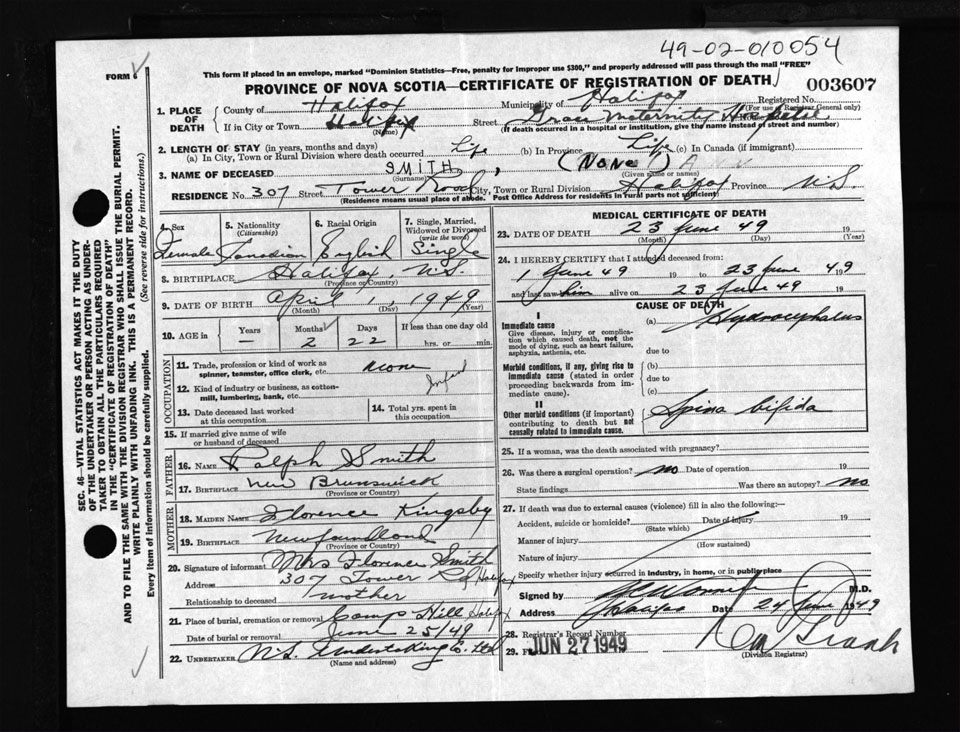 49-02-010054
FORM 6
This form if placed in an envelope, marked "Dominion Statistics—Free, penalty for improper use $300," and properly addressed will pass through the mail "FREE"
PROVINCE OF NOVA SCOTIA—CERTIFICATE OF REGISTRATION OF DEATH
003607
SEC. 46—VITAL STATISTICS ACT MAKES IT THE DUTY
OF THE UNDERTAKER OR PERSON ACTING AS UNDER-
TAKER TO OBTAIN ALL THE PARTICULARS REQUIRED
IN THE "CERTIFICATE OF REGISTRATION OF DEATH"
AND TO FILE THE SAME WITH THE DIVISION REGISTRAR WHO SHALL ISSUE THE BURIAL PERMIT.
WRITE PLAINLY WITH UNFADING INK. THIS IS A PERMANENT RECORD.
Every item of information should be carefully supplied. (See reverse side for instructions.)
1. PLACE OF DEATH County of Halifax Municipality of Halifax Registered No.
(For use of Registrar General only)
If in City or Town Halifax Street Grace Maternity Hospital
(Name) (If death occurred in a hospital or institution, give the name instead of street and number)
2. LENGTH OF STAY (in years, months and days)
(a) In City, Town or Rural Division where death occurred Life (b) In Province Life (c) In Canada (if immigrant)
3. NAME OF DECEASED SMITH, (None) ANN
(Surname) (Given name or names)
RESIDENCE No. 307 Street Tower Road City, Town or Rural Division Halifax Province N.S.
(Residence means usual place of abode. Post Office Address for residents in rural parts not sufficient)
4. Sex
Female
5. Nationality
(Citizenship)
Canadian
6. Racial Origin
English
7. Single, Married, Widowed or Divorced
(write the word)
Single
8. BIRTHPLACE Halifax, N.S.
(Province or Country)
9. DATE OF BIRTH April 1, 1949
(Month) (Day) (Year)
10. AGE in Years Months Days If less than one day old
— 2 22 hrs. or min.
OCCUPATION
11. Trade, profession or kind of work as
spinner, teamster, office clerk, etc. None
12. Kind of industry or business, as cotton-
mill, lumbering, bank, etc. Infant
13. Date deceased last worked
at this occupation
14. Total yrs. spent in
this occupation
15. If married give name of wife
or husband of deceased
FATHER
16. NAME Ralph Smith
17. BIRTHPLACE New Brunswick
(Province or Country)
MOTHER
18. MAIDEN NAME Florence Kingsby
19. BIRTHPLACE Newfoundland
(Province or Country)
20. Signature of informant Mrs Florence Smith
Address 307 Tower Rd Halifax
Relationship to deceased mother
21. Place of burial, cremation or removal Camp Hill Halifax
Date of burial or removal June 25/49
22. UNDERTAKER N.S. Undertaking Co. Ltd
(Name and address)
MEDICAL CERTIFICATE OF DEATH
23. DATE OF DEATH 23 June 49
(Month) (Day) (Year)
24. I HEREBY CERTIFY that I attended deceased from:
1 June 49 19 to 23 June 49 19
and last saw him alive on 23 June 49 19
CAUSE OF DEATH
I
Immediate cause
Give disease, injury or complica-
tion which caused death, not the
mode of dying, such as heart failure,
asphyxia, asthenia, etc.
(a) Hydrocephalus
due to
Morbid conditions, if any, giving rise to
immediate cause (stated in order
proceeding backwards from im-
mediate cause).
(b)
due to
(c)
II
Other morbid conditions (if important)
contributing to death but not
causally related to immediate cause.
Spina bifida
25. If a woman, was the death associated with pregnancy?
26. Was there a surgical operation? no Date of operation 19
State findings Was there an autopsy? No
27. If death was due to external causes (violence) fill in also the following:—
Accident, suicide or homicide? Date of injury 19
(State which)
Manner of injury
(How sustained)
Nature of injury
Specify whether injury occurred in industry, in home, or in public place
Signed by M.D.
Address Halifax Date 24 June 1949
28. Registrar's Record Number
29. JUN 27 1949
(Division Registrar)